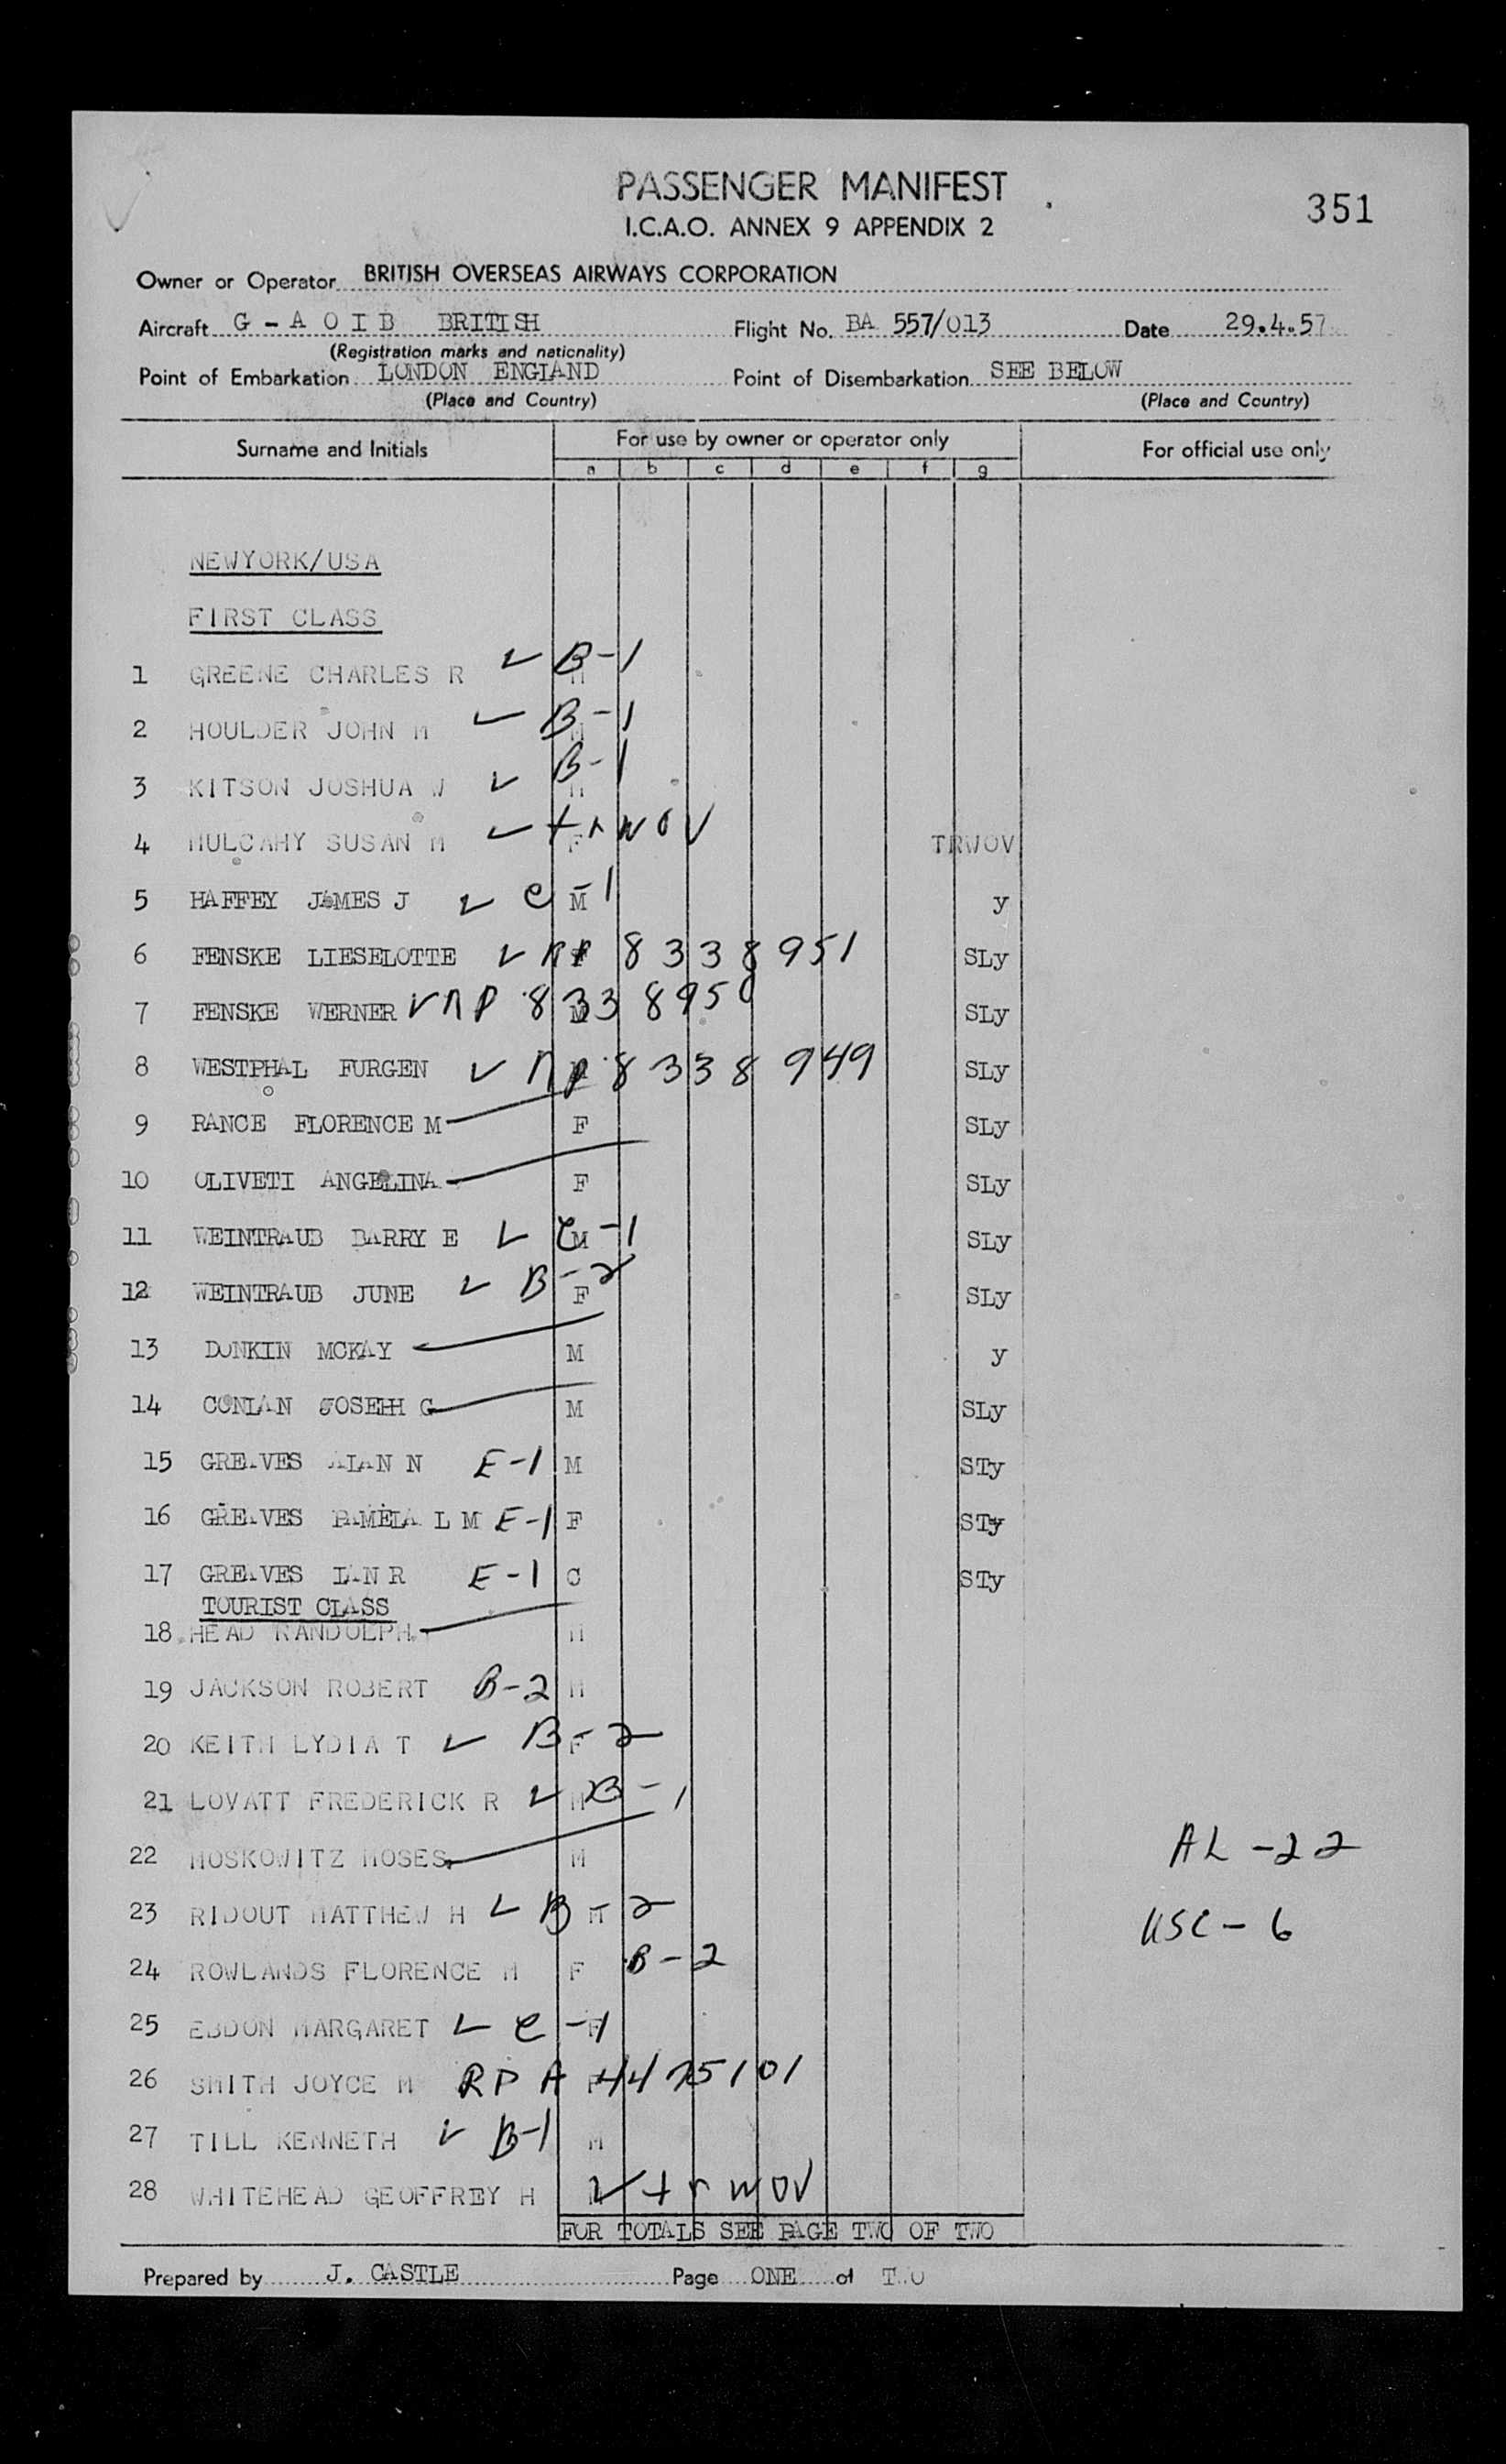 PASSENGER MANIFEST
351
I.C.A.O. ANNEX 9 APPENDIX 2
Owner or Operator BRITISH OVERSEAS AIRWAYS CORPORATION
Aircraft G - A O I B BRITISH Flight No. BA 557/013 Date 29.4.57
(Registration marks and nationality)
Point of Embarkation LONDON ENGLAND Point of Disembarkation SEE BELOW
(Place and Country) (Place and Country)
Surname and Initials For use by owner or operator only For official use only
a b c d e f g
NEWYORK/USA
FIRST CLASS
1 GREENE CHARLES R B-1 M
2 HOULDER JOHN M B-1 M
3 KITSON JOSHUA W B-1 M
4 MULCAHY SUSAN M trwov F TRWOV
5 HAFFEY JAMES J C-1 M y
6 FENSKE LIESELOTTE NP F 8338951 SLy
7 FENSKE WERNER NP 8338950 M SLy
8 WESTPHAL FURGEN NP 8338949 SLy
9 RANCE FLORENCE M F SLy
10 OLIVETI ANGELINA F SLy
11 WEINTRAUB BARRY E C-1 M SLy
12 WEINTRAUB JUNE B-2 F SLy
13 DUNKIN MCKAY M y
14 CONLAN JOSEPH G M SLy
15 GREAVES ALAN N E-1 M STy
16 GREAVES PAMELA L M E-1 F STy
17 GREAVES IAN R E-1 C STy
TOURIST CLASS
18 HEAD RANDOLPH M
19 JACKSON ROBERT B-2 M
20 KEITH LYDIA T B-2 F
21 LOVATT FREDERICK R M B-1
22 MOSKOWITZ MOSES M
AL-22
23 RIDOUT MATTHEW H B-2 M
USC-6
24 ROWLANDS FLORENCE M F B-2
25 EBDON MARGARET C-1 F
26 SMITH JOYCE M RP A F
27 TILL KENNETH B-1 M
28 WHITEHEAD GEOFFREY H trwov
FOR TOTALS SEE PAGE TWO OF TWO
Prepared by J. CASTLE Page ONE of TWO